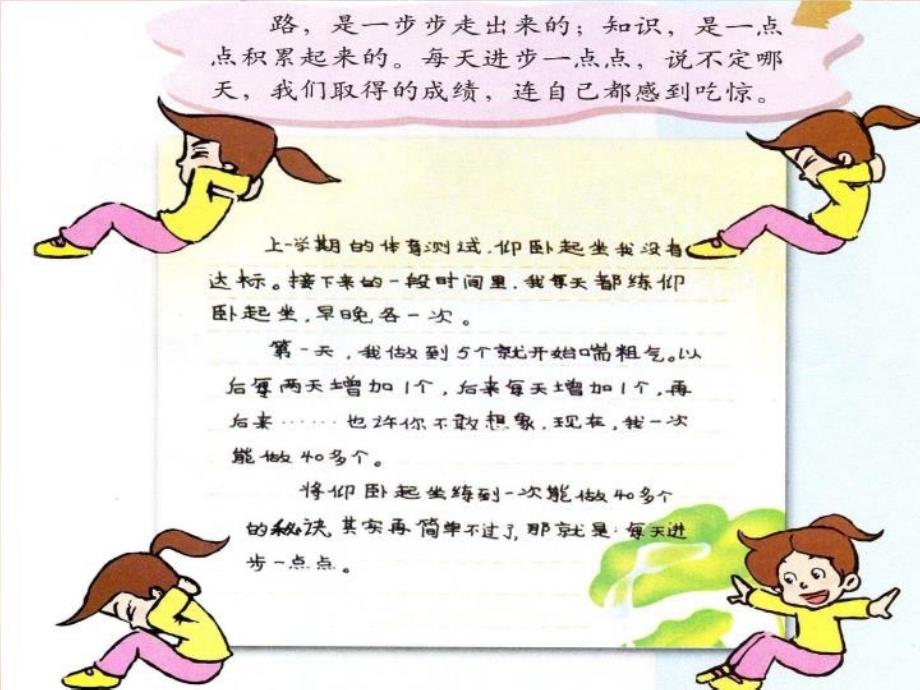 路，是一步步走出来的；知识，是一点
点积累起来的。每天进步一点点，说不定哪
天，我们取得的成绩，连自己都感到吃惊。
上一学期的体育测试，仰卧起坐我没有
达标。接下来的一段时间里，我每天都练仰
卧起坐，早晚各一次。
第一天，我做到5个就开始喘粗气。以
后每两天增加1个，后来每天增加1个，再
后来……也许你不敢想象，现在，我一次
能做40多个。
将仰卧起坐练到一次能做40多个
的秘诀，其实再简单不过了，那就是：每天进
步一点点。